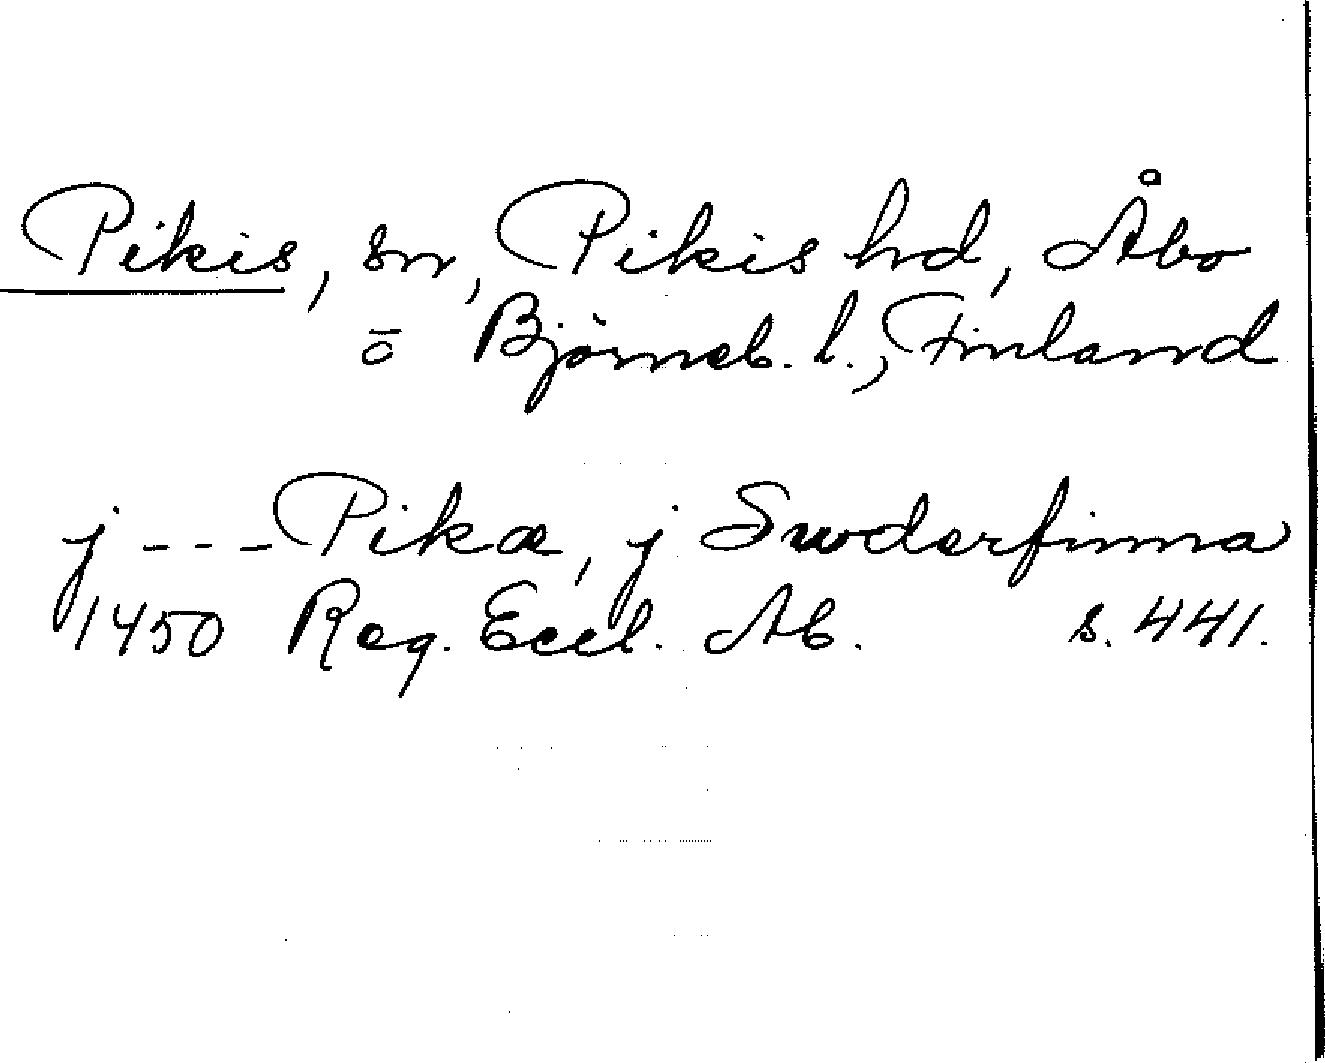 Pikis, sn, Pikis hd, Åbo
o Björneb. l., Finland
j --- Pikæ, j Swderfinna
1450 Reg. Eccl. Ab. s. 441.